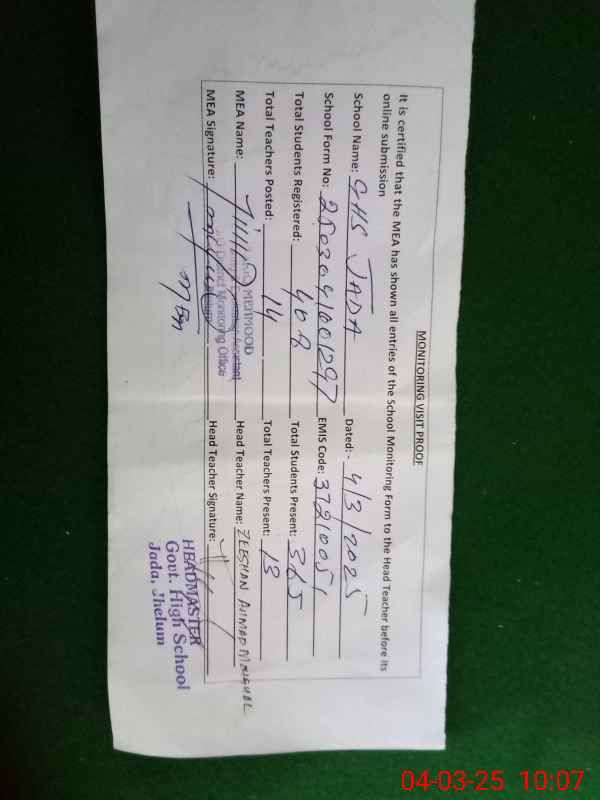 MONITORING VISIT PROOF
It is certified that the MEA has shown all entries of the School Monitoring Form to the Head Teacher before its
online submission
School Name: GHS JADA Dated:- 4/3/2025
School Form No: 2503041001297 EMIS Code: 37210051
Total Students Registered: 408 Total Students Present: 365
Total Teachers Posted: 14 Total Teachers Present: 13
MEA Name: Head Teacher Name: ZEESHAN AHMAD MUGHAL
MEHMOOD
Assistant
District Monitoring Office
MEA Signature: Head Teacher Signature:
HEADMASTER
Govt. High School
Jada, Jhelum
04-03-25 10:07